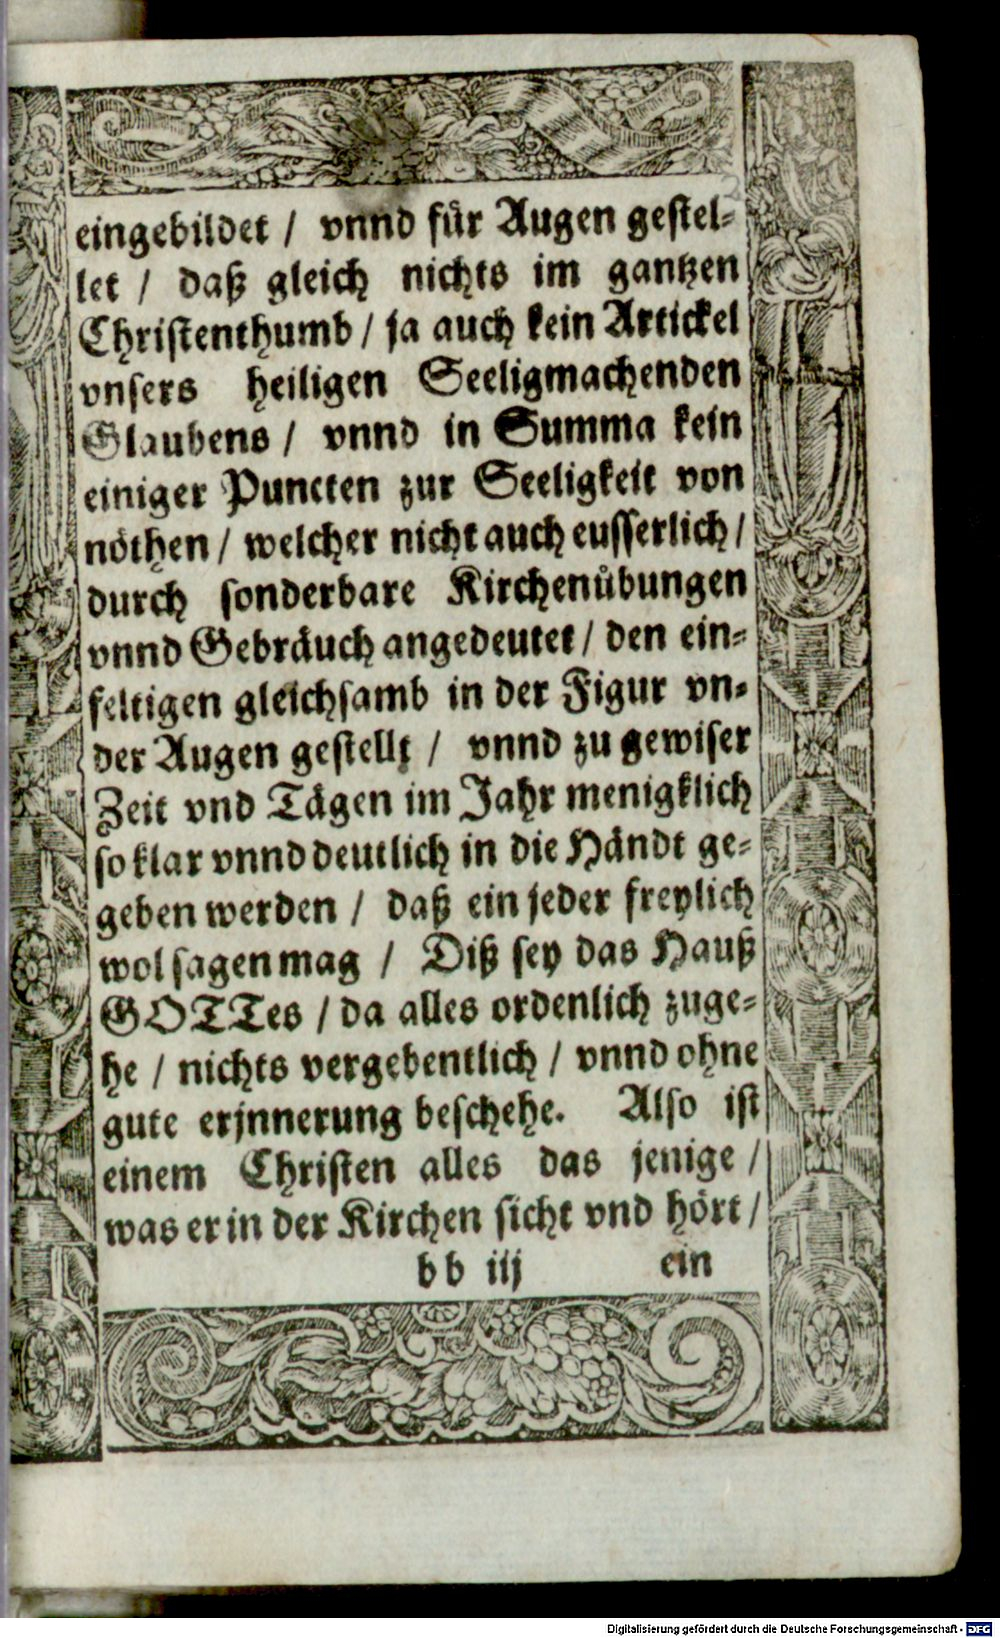 eingebildet / vnnd für Augen gestel-
let / daß gleich nichts im gantzen
Christenthumb / ja auch kein Artickel
vnsers heiligen Seeligmachenden
Glaubens / vnnd in Summa kein
einiger Puncten zur Seeligkeit von
nöthen / welcher nicht auch eusserlich /
durch sonderbare Kirchenübungen
vnnd Gebräuch angedeutet / den ein-
feltigen gleichsamb in der Figur vn-
der Augen gestellt / vnnd zu gewiser
Zeit vnd Tägen im Jahr menigklich
so klar vnnd deutlich in die Händt ge-
geben werden / daß ein jeder freylich
wol sagen mag / Diß sey das Hauß
GOTTes / da alles ordenlich zuge-
he / nichts vergebentlich / vnnd ohne
gute erjnnerung beschehe. Also ist
einem Christen alles das jenige /
was er in der Kirchen sicht vnd hört /
bb iij ein
Digitalisierung gefördert durch die Deutsche Forschungsgemeinschaft - DFG